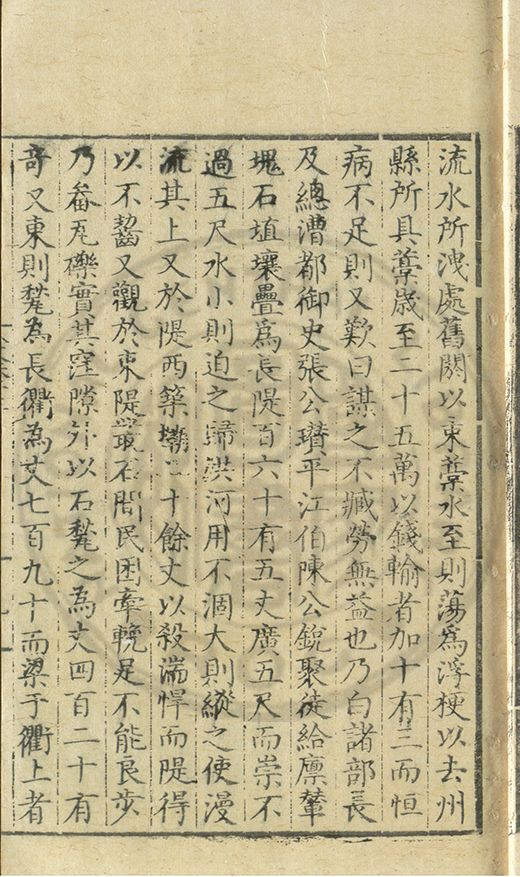 流水所洩處舊閼以束藁水至則蕩為浮梗以去州
縣所具藁歲至二十五萬以錢輸者加十有三而恒
病不足則又歎曰謀之不臧勞無益也乃白諸部長
及總漕都御史張公瓚平江伯陳公銳聚徒給廩輦
塊石埴壤疊為長隄百六十有五丈廣五尺而崇不
過五尺水小則迫之歸洪河用不涸大則縱之使漫
流其上又於隄西築壩二十餘丈以殺湍悍而隄得
以不齧又觀於東隄叢石間民困牽輓足不能良步
乃畚瓦礫實其窪隙外以石甃之為丈四百二十有
奇又東則甃為長衢為丈七百九十而梁于衢上者